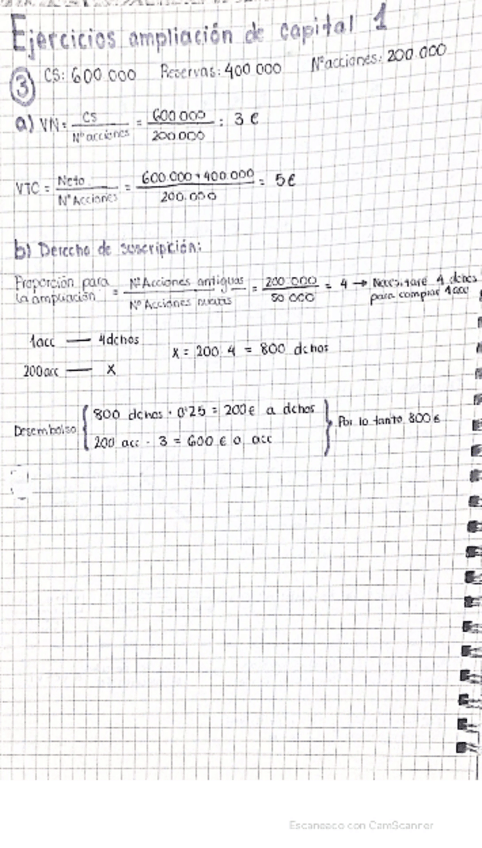 Ejercicios ampliación de capital 1
③ CS: 600.000 Reservas: 400.000 Nº acciones: 200.000
a) VN = CS / Nº acciones = 600.000 / 200.000 = 3 €
VTC = Neto / Nº Acciones = 600.000 + 400.000 / 200.000 = 5€
b) Derecho de suscripción:
Proporción para la ampliación = Nº Acciones antiguas / Nº Acciones nuevas = 200.000 / 50.000 = 4 → Necesitaré 4 dchos para comprar 1 acc
1acc — 4dchos
X = 200 · 4 = 800 dchos
200acc — X
Desembolso { 800 dchos · 0'25 = 200€ a dchos
200 acc · 3 = 600 € a acc } Por lo tanto 800€
Escaneado con CamScanner